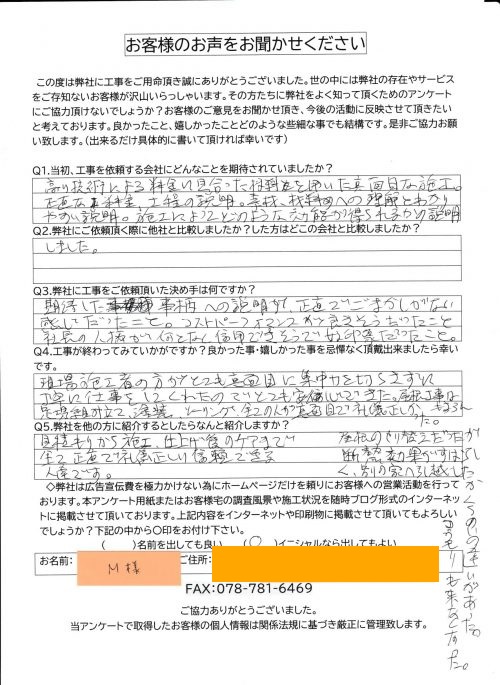 お客様のお声をお聞かせください
この度は弊社に工事をご用命頂き誠にありがとうございました。世の中には弊社の存在やサービス
をご存知ないお客様が沢山いらっしゃいます。その方たちに弊社をよく知って頂くためのアンケート
にご協力頂けないでしょうか？お客様のご意見をお聞かせ頂き、今後の活動に反映させて頂きたい
と考えております。良かったこと、嬉しかったことどのような些細な事でも結構です。是非ご協力お願
い致します。（出来るだけ具体的に書いて頂ければ幸いです）
Q1.当初、工事を依頼する会社にどんなことを期待されていましたか？
高い技術による料金に見合った材料を用いた真面目な施工。
正直な料金、工程の説明。素材、材料への理解とわかり
やすい説明。施工によってどのような効能が得られるかの説明
Q2.弊社にご依頼頂く際に他社と比較しましたか？した方はどこの会社と比較しましたか？
しました。
Q3.弊社に工事をご依頼頂いた決め手は何ですか？
期待した事柄への説明が、正直でごまかしがない
感じだったこと。コストパーフォマンスが良さそうだったこと
社長の人柄が何となく信用できそうで好印象だったこと。
Q4.工事が終わってみていかがですか？良かった事・嬉しかった事を忌憚なく頂戴出来ましたら幸い
です。
現場施工者の方がとても真面目に集中力を切らさずに
丁寧に仕事をしてくれたのでとても安心できた。屋根工事は
足場組み立て、塗装、シーリング、全ての人が真面目で礼儀正しか
った。
Q5.弊社を他の方に紹介するとしたらなんと紹介しますか？
見積もりから施工、仕上げ後のケアまで
全て正直で礼儀正しい信頼できる
人達です。
屋根のぬり替えだけだが
断熱効果がすばらし
く、別の家へ引越した
かくらいのちがいがあった。
◇弊社は広告宣伝費を極力かけない為にホームページだけを頼りにお客様への営業活動を行って
おります。本アンケート用紙またはお客様宅の調査風景や施工状況を随時ブログ形式のインターネッ
トに掲載させて頂いております。上記内容をインターネットや印刷物に掲載させて頂いてもよろしい
でしょうか？下記の中から〇印をお付け下さい。
（　　）名前を出しても良い　（〇）イニシャルなら出してもよい
お名前：　M様　ご住所：
FAX:078-781-6469
ご協力ありがとうございました。
当アンケートで取得したお客様の個人情報は関係法規に基づき厳正に管理致します。